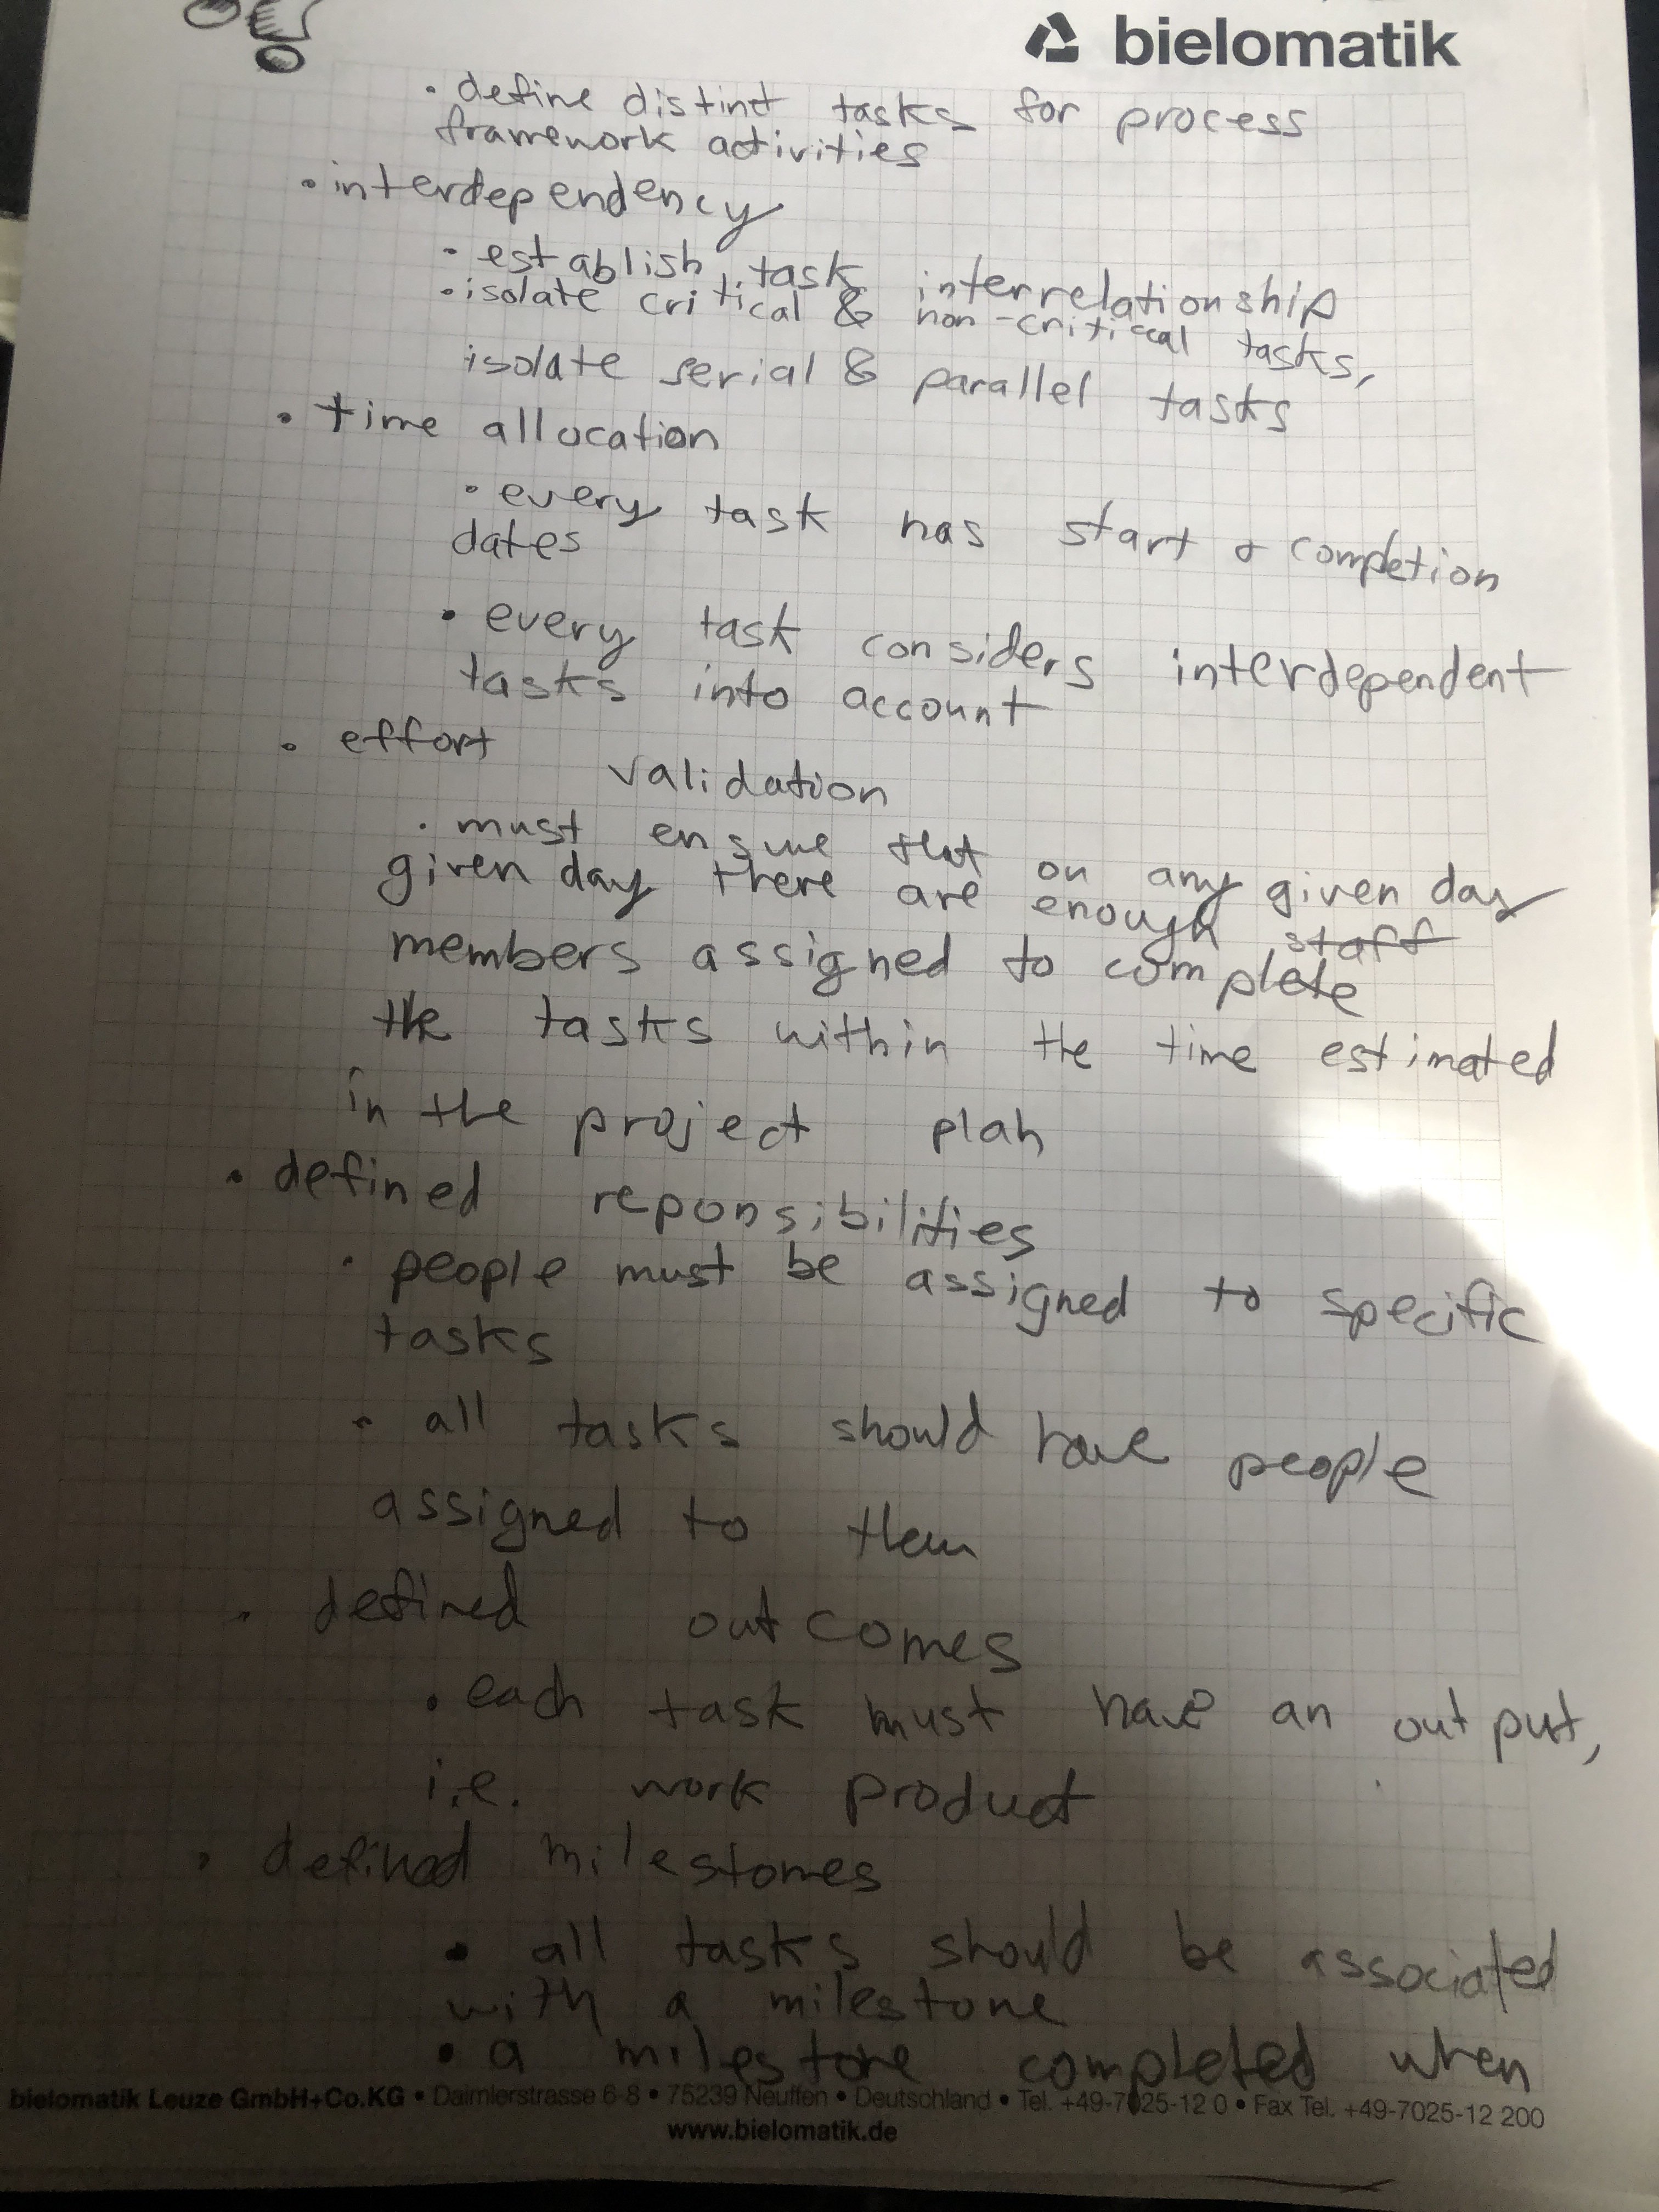 bielomatik
• define distinct tasks for process
framework activities
• interdependency
• establish task interrelationship
• isolate critical & non-critical tasks,
isolate serial & parallel tasks
• time allocation
• every task has start & completion
dates
• every task considers interdependent
tasks into account
• effort validation
• must ensure that on any given day
given day there are enough staff
members assigned to complete
the tasks within the time estimated
in the project plan
• defined reponsibilities
• people must be assigned to specific
tasks
• all tasks should have people
assigned to them
• defined outcomes
• each task must have an output,
i.e. work product
• defined milestones
• all tasks should be associated
with a milestone
• a milestone completed when
bielomatik Leuze GmbH+Co.KG • Daimlerstrasse 6-8 • 75239 Neuffen • Deutschland • Tel. +49-7025-12 0 • Fax Tel. +49-7025-12 200
www.bielomatik.de